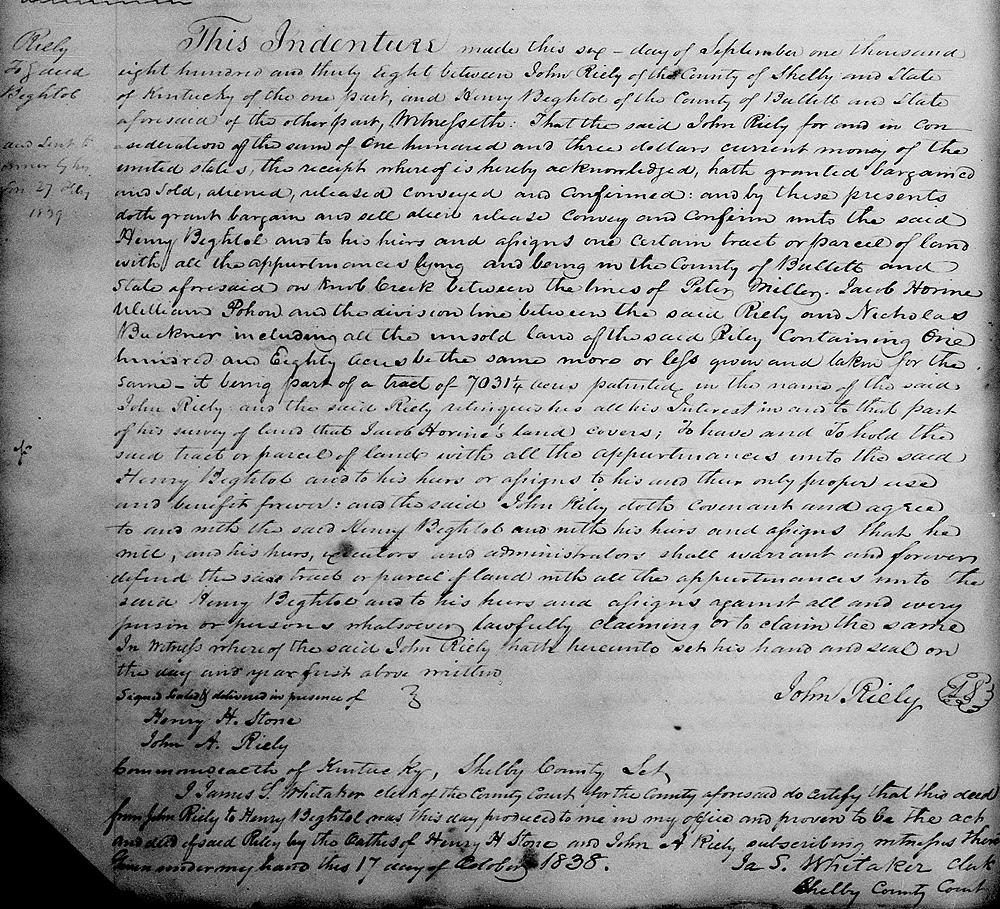 Riely
To Deed
Beghtol
and Sent to
27
1839
This Indenture made this six - day of September one thousand
eight hundred and thirty Eight between John Riely of the County of Shelby and State
of Kentucky of the one part, and Henry Beghtol of the County of Bullett and State
aforesaid of the other part, Witnesseth: That the said John Riely for and in Con
sideration of the sum of One hundred and three dollars current money of the
united states, the receipt where of is hereby acknowledged, hath granted bargained
and Sold, aliened, released conveyed and confirmed: and by these presents
doth grant bargain and sell alien release Convey and Confirm unto the said
Henry Beghtol and to his heirs and assigns one certain tract or parcel of land
with all the appurtenances lying and being in the County of Bullett and
State aforesaid on Knob Creek between the lines of Peter Miller. Jacob Horine
William Pohon and the division line between the said Riely and Nicholas
Buckner including all the unsold land of the said Riley Containing One
hundred and Eighty acres be the same more or less given and taken for the
same - it being part of a tract of 7031¼ acres patented in the name of the said
John Riely and the said Riely relinquishes all his Interest in and to that part
of his survey of land that Jacob Horine's land covers; To have and To hold the
said tract or parcel of land with all the appurtenances unto the said
Henry Beghtol and to his heirs or assigns to his and their only proper use
and benefit forever: and the said John Riley doth Covenant and agree
to and with the said Henry Beghtol and with his heirs and assigns that he
will, and his heirs, executors and administrators shall warrant and forever
defend the said tract or parcel of land with all the appurtenances unto the
said Henry Beghtol and to his heirs and assigns against all and every
person or persons whatsoever lawfully claiming or to claim the same
In Witness where of the said John Riely hath hereunto set his hand and seal on
the day and year first above written
Signed Sealed & delivered in presence of
John Riely
Henry H. Stone
John A. Riely
Commonwealth of Kentucky, Shelby County Sct,
I James S. Whitaker clerk of the County Court for the County aforesaid do certify that this deed
from John Riely to Henry Beghtol was this day produced to me in my office and proven to be the act
and deed of said Riley by the Oaths of Henry H Stone and John A Riely subscribing witnesses
Given under my hand this 17 day of October 1838.
Ja S. Whitaker clerk
Shelby County Court